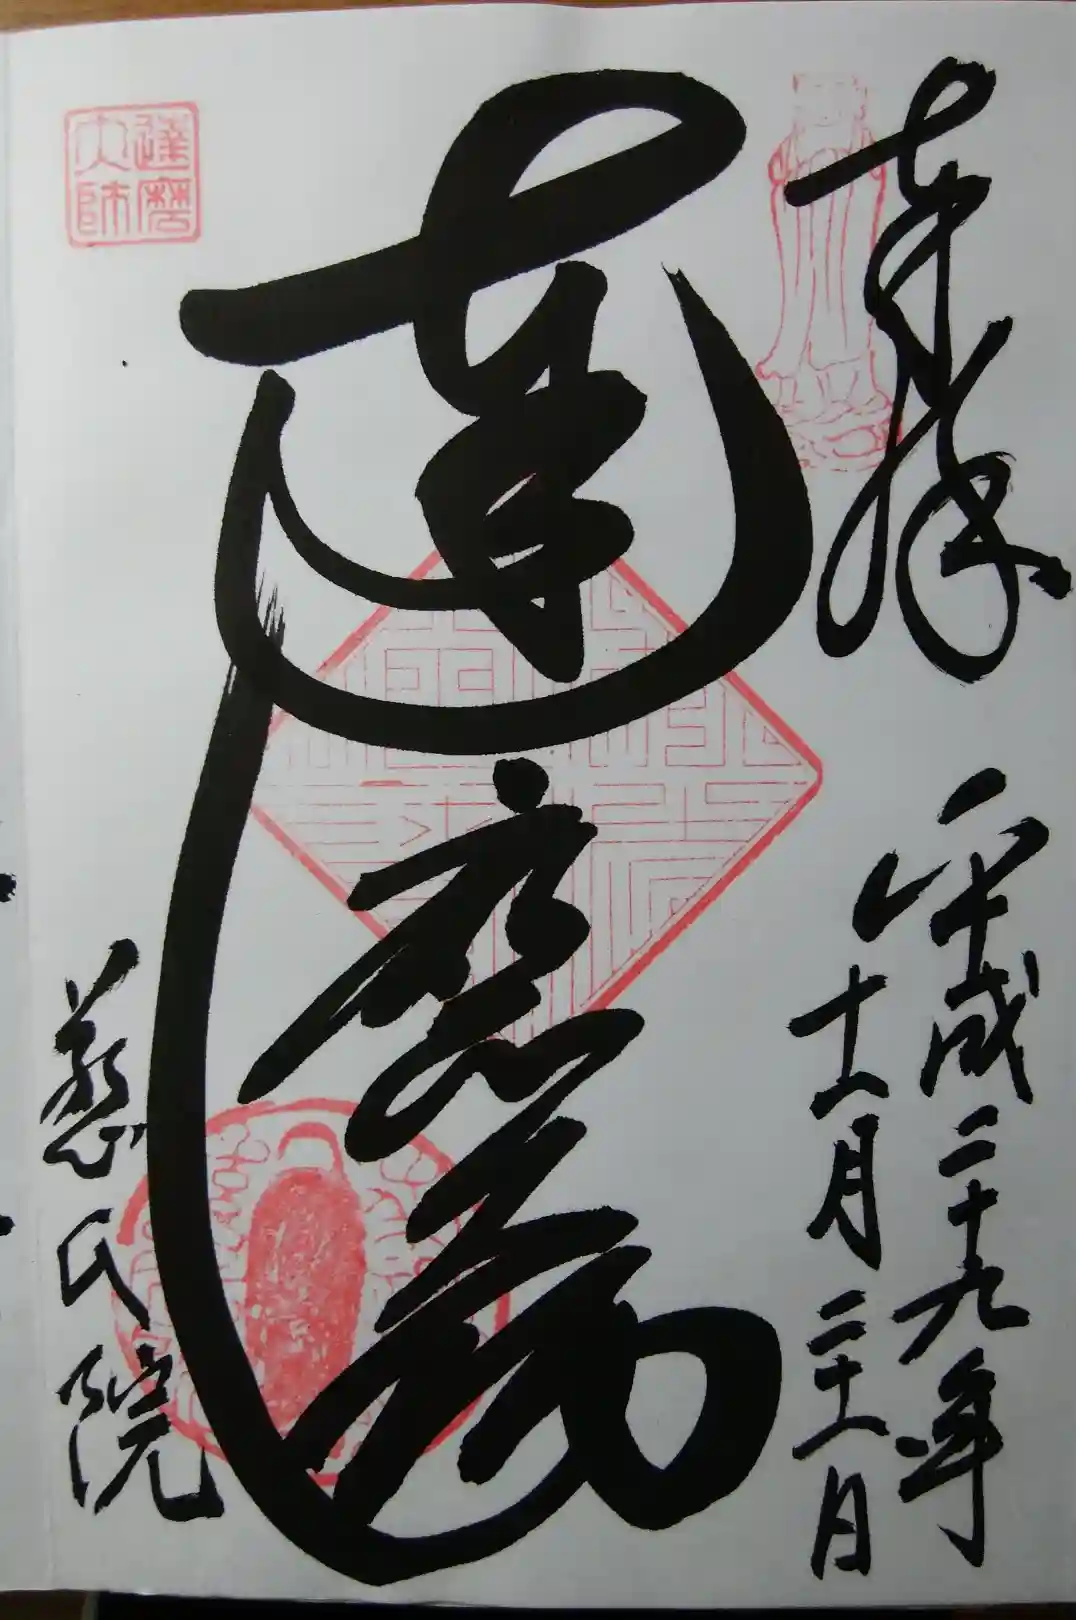 奉拝
平成二十九年
十一月二十一日
達磨
慈氏院
達磨
大師